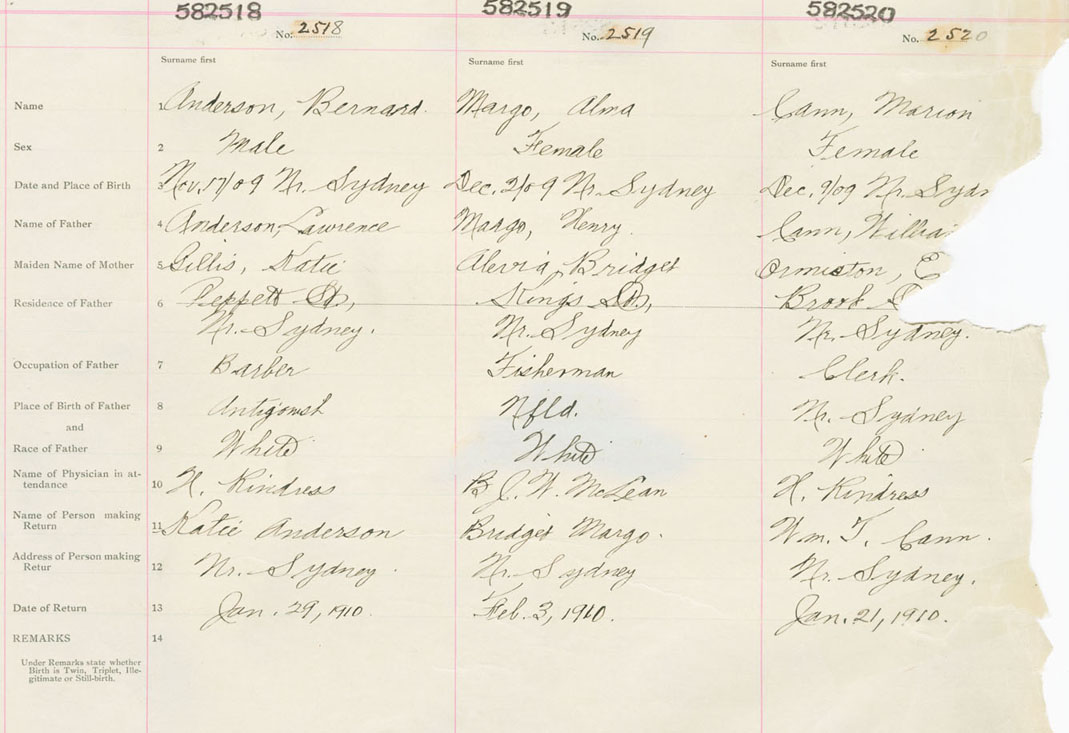 582518 582519 582520
No. 2518 No. 2519 No. 2520
Surname first Surname first Surname first
Name 1 Anderson, Bernard. Margo, Alma Cann, Marion
Sex 2 Male Female Female
Date and Place of Birth 3 Nov. 17/09 Nr. Sydney Dec. 2/09 Nr. Sydney Dec. 9/09 Nr. Syd
Name of Father 4 Anderson, Lawrence Margo, Henry. Cann, Willia
Maiden Name of Mother 5 Gillis, Katie Bridget Ormiston, E
Residence of Father 6 Peppett St., Kings Brook
Nr. Sydney. Nr. Sydney Nr. Sydney.
Occupation of Father 7 Barber Fisherman Clerk.
Place of Birth of Father 8 Antigonish Nfld. Nr. Sydney
and
Race of Father 9 White White White
Name of Physician in at-
tendance 10 H. Kindress McLean H. Kindress
Name of Person making
Return 11 Katie Anderson Bridget Margo. Wm. T. Cann.
Address of Person making
Retur 12 Nr. Sydney. Nr. Sydney Nr. Sydney.
Date of Return 13 Jan. 29, 1910. Feb. 3, 1910. Jan. 21, 1910.
REMARKS 14
Under Remarks state whether
Birth is Twin, Triplet, Ille-
gitimate or Still-birth.